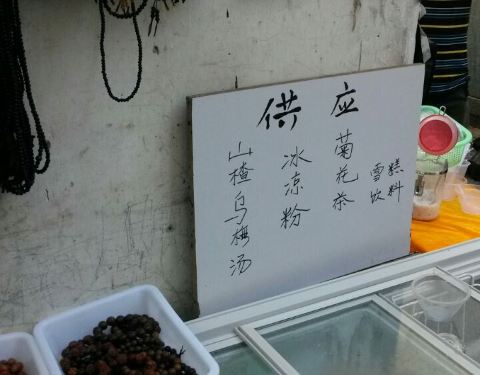 供应
山楂乌梅汤
冰凉粉
菊花茶
雪糕
饮料